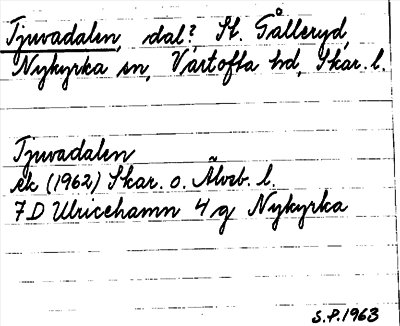 Tjuvadalen, dal?, St. Gålleryd,
Nykyrka sn, Vartofta hd, Skar. l.
Tjuvadalen
ek (1962) Skar. o. Älvsb. l.
7D Ulricehamn 4 g Nykyrka
S.P. 1963